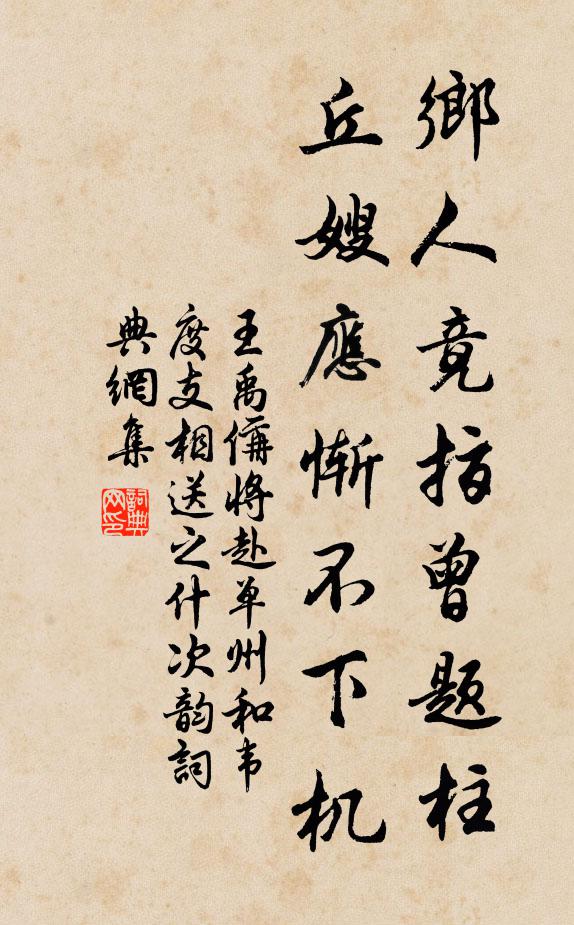 鄉人竟指曾題柱
丘嫂應慚不下机
王禹偁將赴单州和韦
度支相送之什次韵詞
典網集
詞典网印